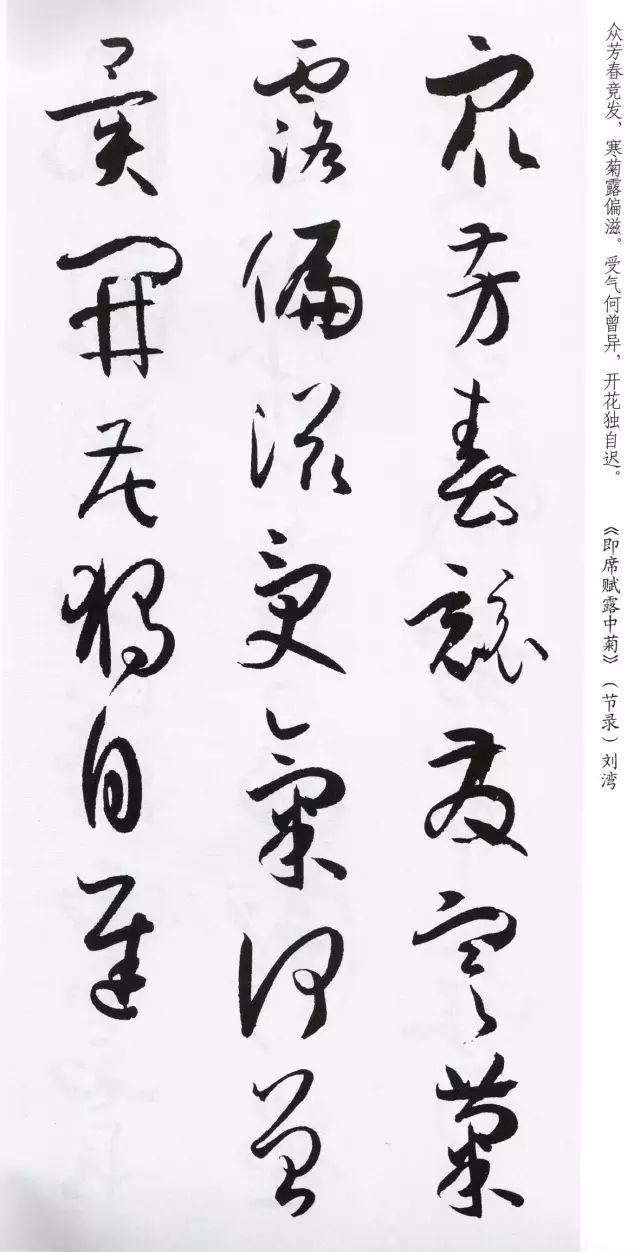 众芳春竞发，寒菊露偏滋。受气何曾异，开花独自迟。 《即席赋露中菊》（节录）刘湾
眾芳春競發寒菊
露偏滋受氣何曾
異開花獨自遲